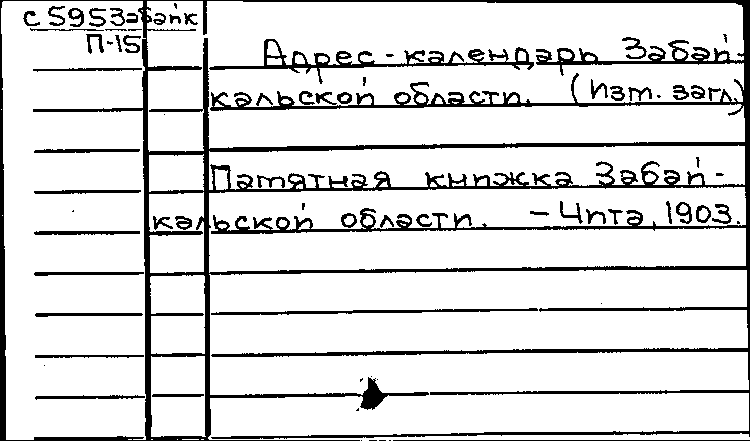 С5953абайк
П-15
Адрес-календарь Забай-
кальской области. (Изм. загл.)
Памятная книжка Забай-
кальской области. - Чита, 1903.